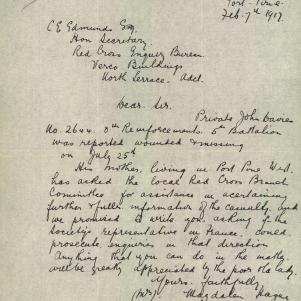 Port Pirie.
Feb. 7th 1917.
C E Edmunds Esq.
Hon Secretary
Red Cross Enquiry Bureau
Verco Buildings
North Terrace. Adel.
Dear Sir.
Private John Davies
No. 2644. 8th Reinforcements. 5th Battalion
was reported wounded & missing
on July 25th
His mother, living in Port Pirie West,
has asked the local Red Cross Branch
Committee for assistance in ascertaining
further & fuller information of the casualty, and
we promised to write you, asking if the
Society's representative in France, could
prosecute enquiries in that direction
Anything that you can do in the matter
will be greatly appreciated by the poor old lady.
Yours faithfully
(Mrs) Magdalen